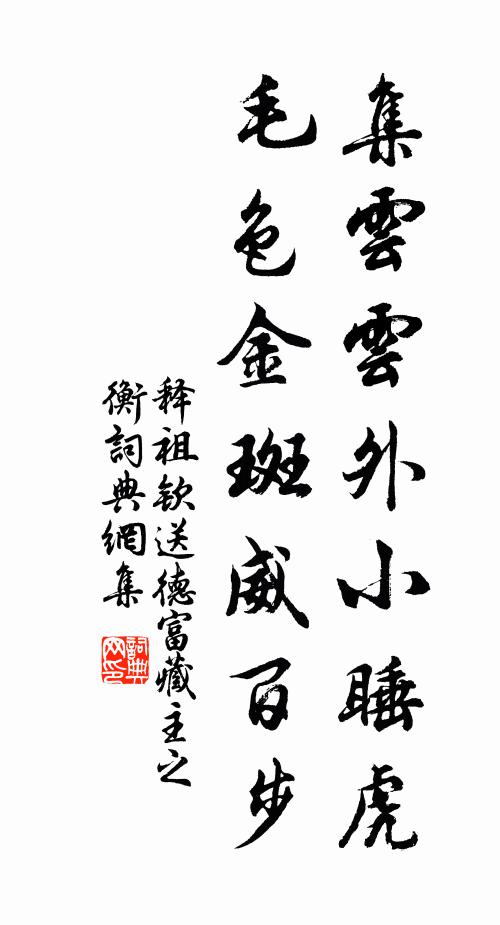 集雲雲外小睡虎
毛色金斑威百步
释祖钦送德富藏主之
衡詞典網集
詞典
网印